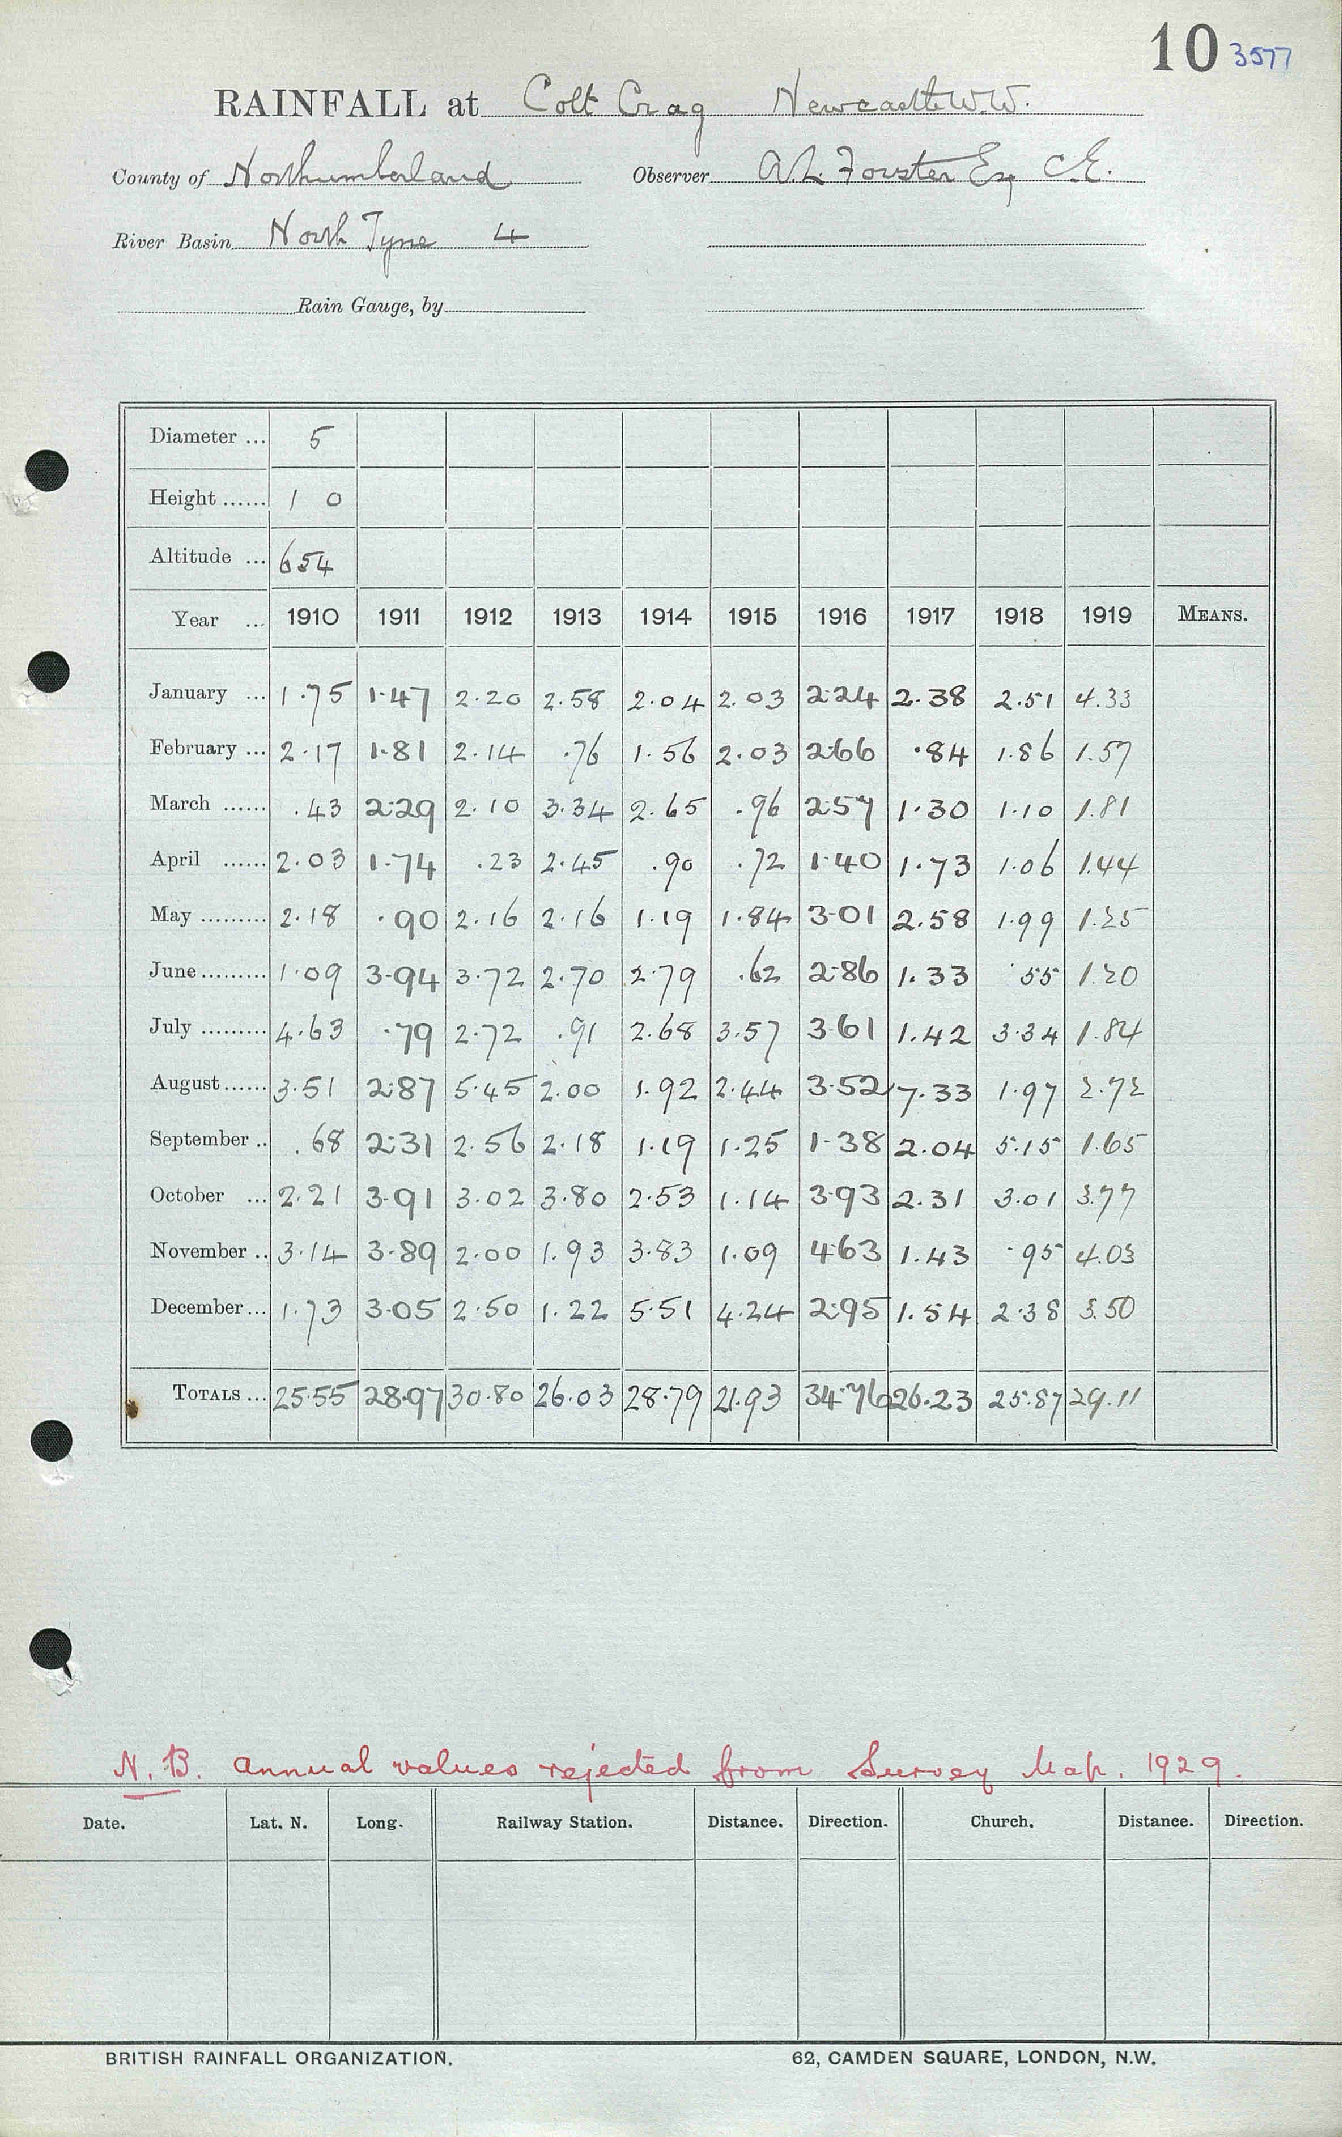 10 3577
RAINFALL at Colt Crag Newcastle W.W.
County of Northumberland Observer A.L. Forster Esq C.E.
River Basin North Tyne 4
Rain Gauge, by
Diameter ... 5
Height ...... 1 0
Altitude ... 654
Year ... 1910 1911 1912 1913 1914 1915 1916 1917 1918 1919 MEANS.
January ... 1.75 1.47 2.20 2.58 2.04 2.03 2.24 2.38 2.51 4.33
February ... 2.17 1.81 2.14 .76 1.56 2.03 2.66 .84 1.86 1.57
March ...... .43 2.29 2.10 3.34 2.65 .96 2.57 1.30 1.10 1.81
April ...... 2.03 1.74 .23 2.45 .90 .72 1.40 1.73 1.06 1.44
May ......... 2.18 .90 2.16 2.16 1.19 1.84 3.01 2.58 1.99 1.25
June ......... 1.09 3.94 3.72 2.70 2.79 .62 2.86 1.33 .55 1.20
July ......... 4.63 .79 2.72 .91 2.68 3.57 3.61 1.42 3.34 1.84
August ...... 3.51 2.87 5.45 2.00 1.92 2.44 3.52 7.33 1.97 2.72
September .. .68 2.31 2.56 2.18 1.19 1.25 1.38 2.04 5.15 1.65
October ... 2.21 3.91 3.02 3.80 2.53 1.14 3.93 2.31 3.01 3.77
November .. 3.14 3.89 2.00 1.93 3.83 1.09 4.63 1.43 .95 4.03
December ... 1.73 3.05 2.50 1.22 5.51 4.24 2.95 1.54 2.38 3.50
TOTALS ... 25.55 28.97 30.80 26.03 28.79 21.93 34.76 26.23 25.87 29.11
N.B. Annual values rejected from Survey Map. 1929.
Date. Lat. N. Long. Railway Station. Distance. Direction. Church. Distance. Direction.
BRITISH RAINFALL ORGANIZATION. 62, CAMDEN SQUARE, LONDON, N.W.